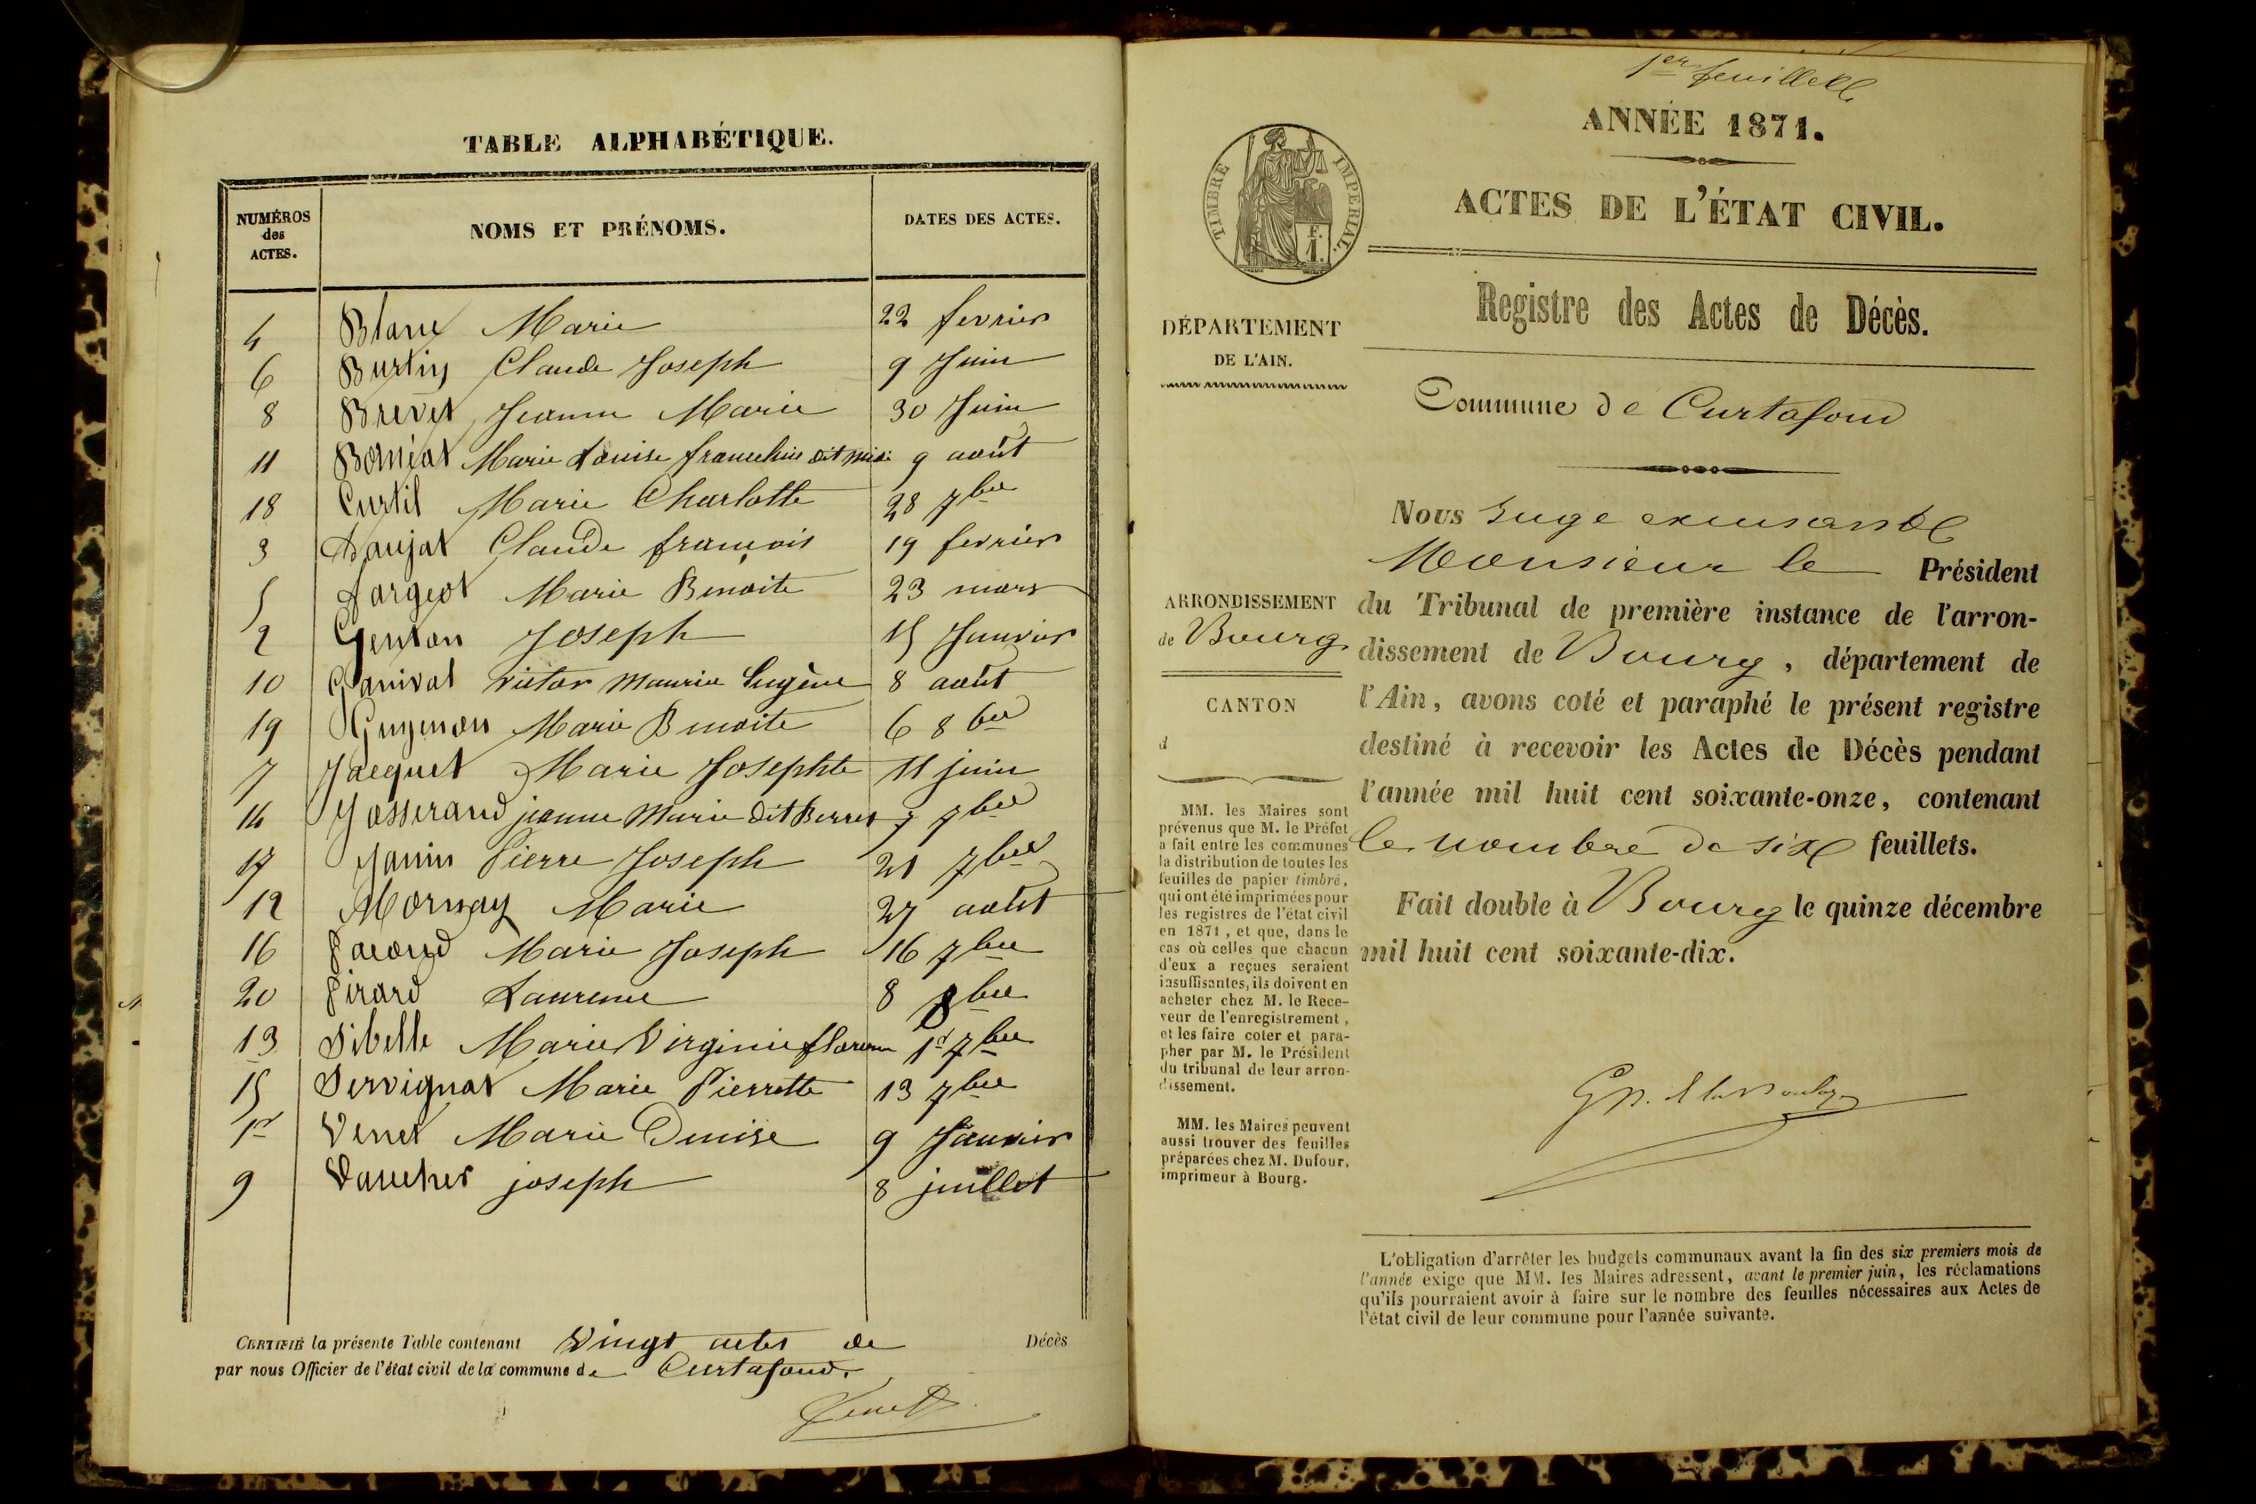 TABLE ALPHABÉTIQUE.
NUMÉROS des ACTES. NOMS ET PRÉNOMS. DATES DES ACTES.
4 Blanc Marie 22 fevrier
6 Burtin Claude Joseph 9 Juin
8 Brevet Jeanne Marie 30 Juin
11 Marie Louise franceline dit 9 août
18 Curtil Marie Charlotte 28 7bre
3 Claude françois 19 fevrier
5 Fargeot Marie Benoite 23 mars
2 Genton Joseph 15 Janvier
10 Ganivat victor Maurice Eugène 8 août
19 Guyenon Marie Benoite 6 8bre
7 Jacquet Marie Josephte 11 juin
14 Josserand jeanne Marie dit 7 7bre
17 Janin Pierre Joseph 21 7bre
12 Mornay Marie 27 août
16 Pacoud Marie Joseph 16 7bre
20 Pirard Laurence 8 8bre
13 Sibelle Marie Virginie 1er 7bre
15 Servignat Marie Pierrette 13 7bre
1er Venet Marie Denise 9 Janvier
9 Vaucher joseph 8 juillet
CERTIFIÉ la présente Table contenant Vingt actes de Décès
par nous Officier de l'état civil de la commune de Curtafond.
Venet
1er feuillet
ANNÉE 1871.
ACTES DE L'ÉTAT CIVIL.
TIMBRE IMPERIAL
F.
1.
Registre des Actes de Décès.
DÉPARTEMENT
DE L'AIN.
Commune de Curtafond
ARRONDISSEMENT
de Bourg
CANTON
d
MM. les Maires sont
prévenus que M. le Préfet
a fait entre les communes
la distribution de toutes les
feuilles de papier timbré,
qui ont été imprimées pour
les registres de l'état civil
en 1871, et que, dans le
cas où celles que chacun
d'eux a reçues seraient
insuffisantes, ils doivent en
acheter chez M. le Rece-
veur de l'enregistrement,
et les faire coter et para-
pher par M. le Président
du tribunal de leur arron-
dissement.
MM. les Maires peuvent
aussi trouver des feuilles
préparées chez M. Dufour,
imprimeur à Bourg.
Nous Juge
Monsieur le Président
du Tribunal de première instance de l'arron-
dissement de Bourg, département de
l'Ain, avons coté et paraphé le présent registre
destiné à recevoir les Actes de Décès pendant
l'année mil huit cent soixante-onze, contenant
le nombre de six feuillets.
Fait double à Bourg le quinze décembre
mil huit cent soixante-dix.
L'obligation d'arrêter les budgets communaux avant la fin des six premiers mois de
l'année exige que MM. les Maires adressent, avant le premier juin, les réclamations
qu'ils pourraient avoir à faire sur le nombre des feuilles nécessaires aux Actes de
l'état civil de leur commune pour l'année suivante.